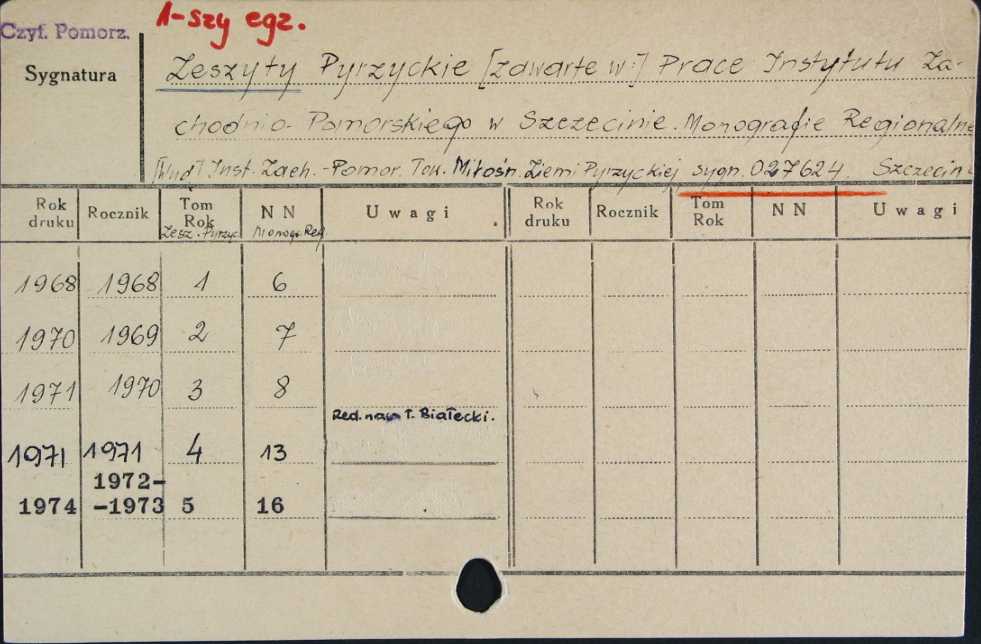 1-szy egz.
Czyt. Pomorz.
Sygnatura
Zeszyty Pyrzyckie [zawarte w:] Prace Instytutu Za-
chodnio-Pomorskiego w Szczecinie. Monografie Regionalne
[Wyd] Inst. Zach.-Pomor. Tow. Miłośn. Ziemi Pyrzyckiej sygn. 027624. Szczecin
Rok druku Rocznik Tom Rok N N Uwagi Rok druku Rocznik Tom Rok N N Uwagi
Zesz. Pyrzyc Monogr. Reg
1968 1968 1 6
1970 1969 2 7
1971 1970 3 8
Red. nacz T. Białecki.
1971 1971 4 13
1972-
1974 -1973 5 16